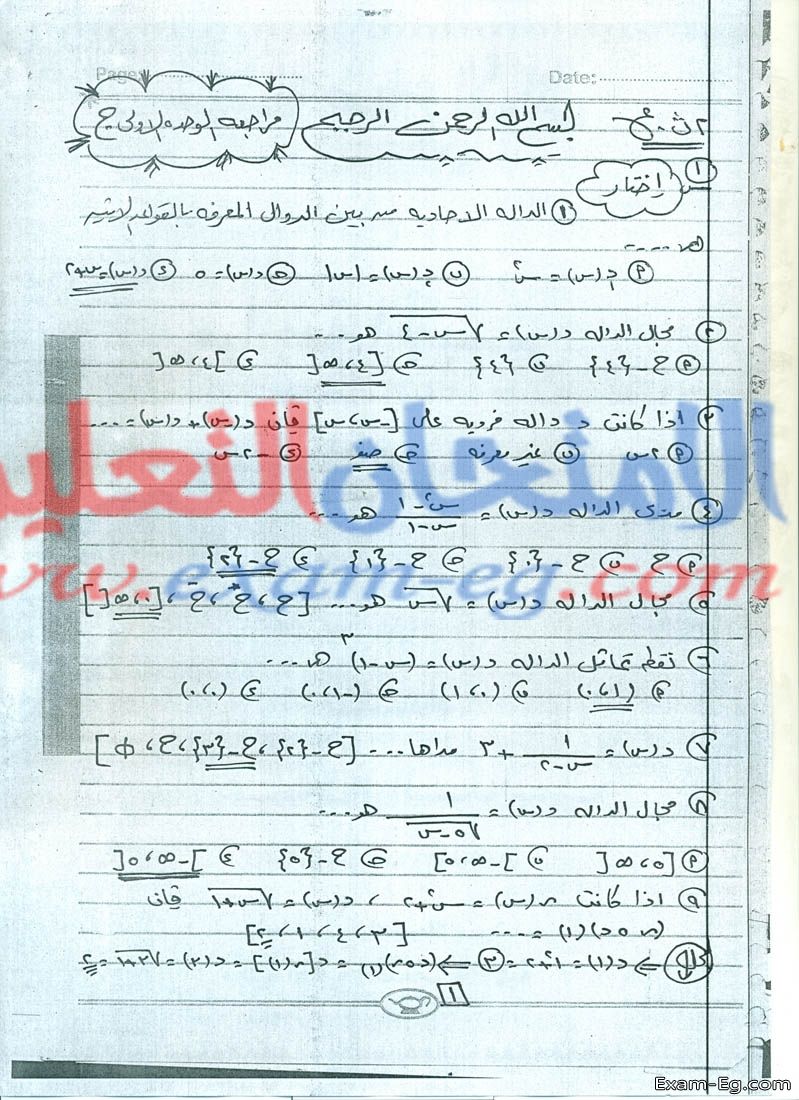 Page: Date:
٢ ث.ع بسم الله الرحمن الرحيم مراجعه الوحده الاولى ج
س١ إختار
① الداله الاحاديه من بين الدوال المعرفه بالقواعد الاتيه
هى ....
Ⓟ د(س) = س٢ ⓤ د(س) = |س| ⓗ د(س) = ٥ ⓢ د(س) = س+٢
② مجال الداله د(س) = √س-٤ هو ...
Ⓟ ح - {٤} ⓤ {٤} ⓗ [٤،∞[ ⓢ ]٤،∞[
③ اذا كانت د داله فرديه على [-س،س] فإن د(-س) + د(س) = ....
Ⓟ ٢س ⓤ غير معرفه ⓗ صفر ⓢ -٢س
④ مدى الداله د(س) = س٢-١ / س-١ هو ....
Ⓟ ح ⓤ ح - {٠} ⓗ ح - {١} ⓢ ح - {٢}
⑤ مجال الداله د(س) = √س هو ... [ح ، ح+ ، ح- ، [٠،∞[ ]
⑥ نقطه تماثل الداله د(س) = (س-١)٣ هى ....
Ⓟ (١،٠) ⓤ (٠،١) ⓗ (-١،٠) ⓢ (٠،٠)
⑦ د(س) = ١ / س-٢ + ٣ مداها .... [ح-{٢} ، ح-{٣} ، ح ، Φ]
⑧ مجال الداله د(س) = ١ / √٥-س هو ....
Ⓟ [٥،∞[ ⓤ ]-∞،٥] ⓗ ح - {٥} ⓢ ]-∞،٥[
⑨ اذا كانت ر(س) = س٢+٢ ، د(س) = √س+١ فإن
(ر ٥ د)(١) = .... [٣ ، ٤ ، ١ ، ٢]
الحل ⇐ د(١) = ١٢+٢ = ③ ⇐ (د ٥ ر)(١) = د[ر(١)] = د(٣) = √٣+١ = ٢
١
الامتحان التعليمى
www.exam-eg.com
Exam-Eg.com